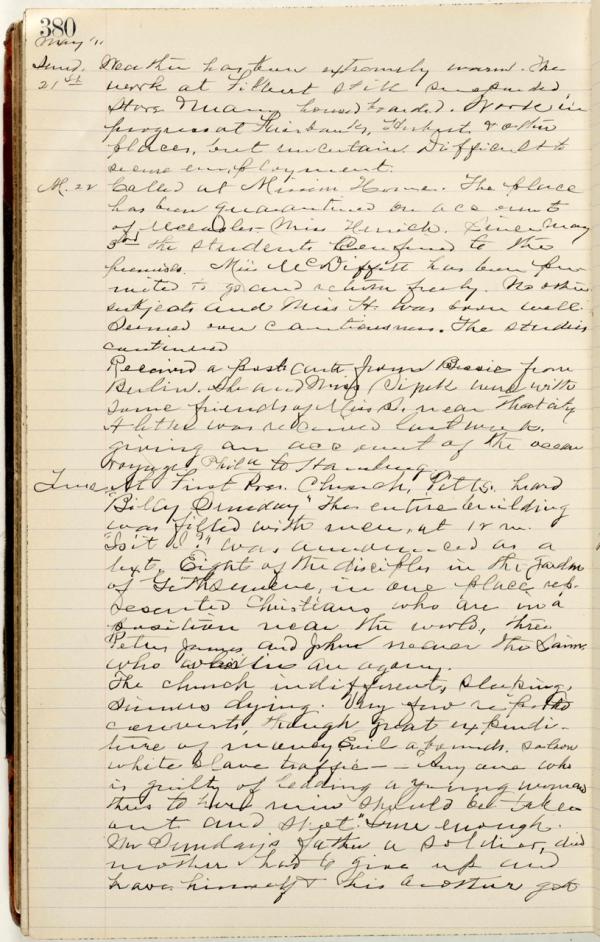 380
May '11
Sund. Weather has been extremely warm. The
21st work at Filbert still suspended,
Store & many houses boarded. Work in
progress at Fairbanks, Herbert & other
places, but uncertain. Difficult to
secure employment.
M. 22 Called at Mission Home. The place
has been quarantined on account
of measles - Miss Herrick. Since May
3rd the students confined to the
premises. Miss McDiffitt has been per
mitted to go and return freely. No other
subjects and Miss H. was soon well.
Seemed over cautiousness. The studies
continued
Received a post card from Bessie from
Berlin. She and Miss were with
some friends of Miss S. near that city
A letter was received last week,
giving an account of the ocean
voyage Phila to Hamburg.
Tues At First Pres. Church, Pitts. heard
"Billy Sunday" The entire building
was filled with men, at 12 m.
"Is it I?" was announced as a
text. Eight of the disciples in the Garden
of Gethsemene, in one place rep-
resented Christians who are in a
position near the world, three
Peter James and John nearer the
who was in an agony.
The church indifferent, sleeping,
sinners dying. Very few
converts, though great expendi-
ture of money Evil abounds. Saloon
white slave traffic -- "Any one who
is guilty of leading a young woman
thus to her ruin should be taken
out and shot." True enough.
Mr Sunday's father a soldier, died
mother had to give up and
have himself & his brother go to